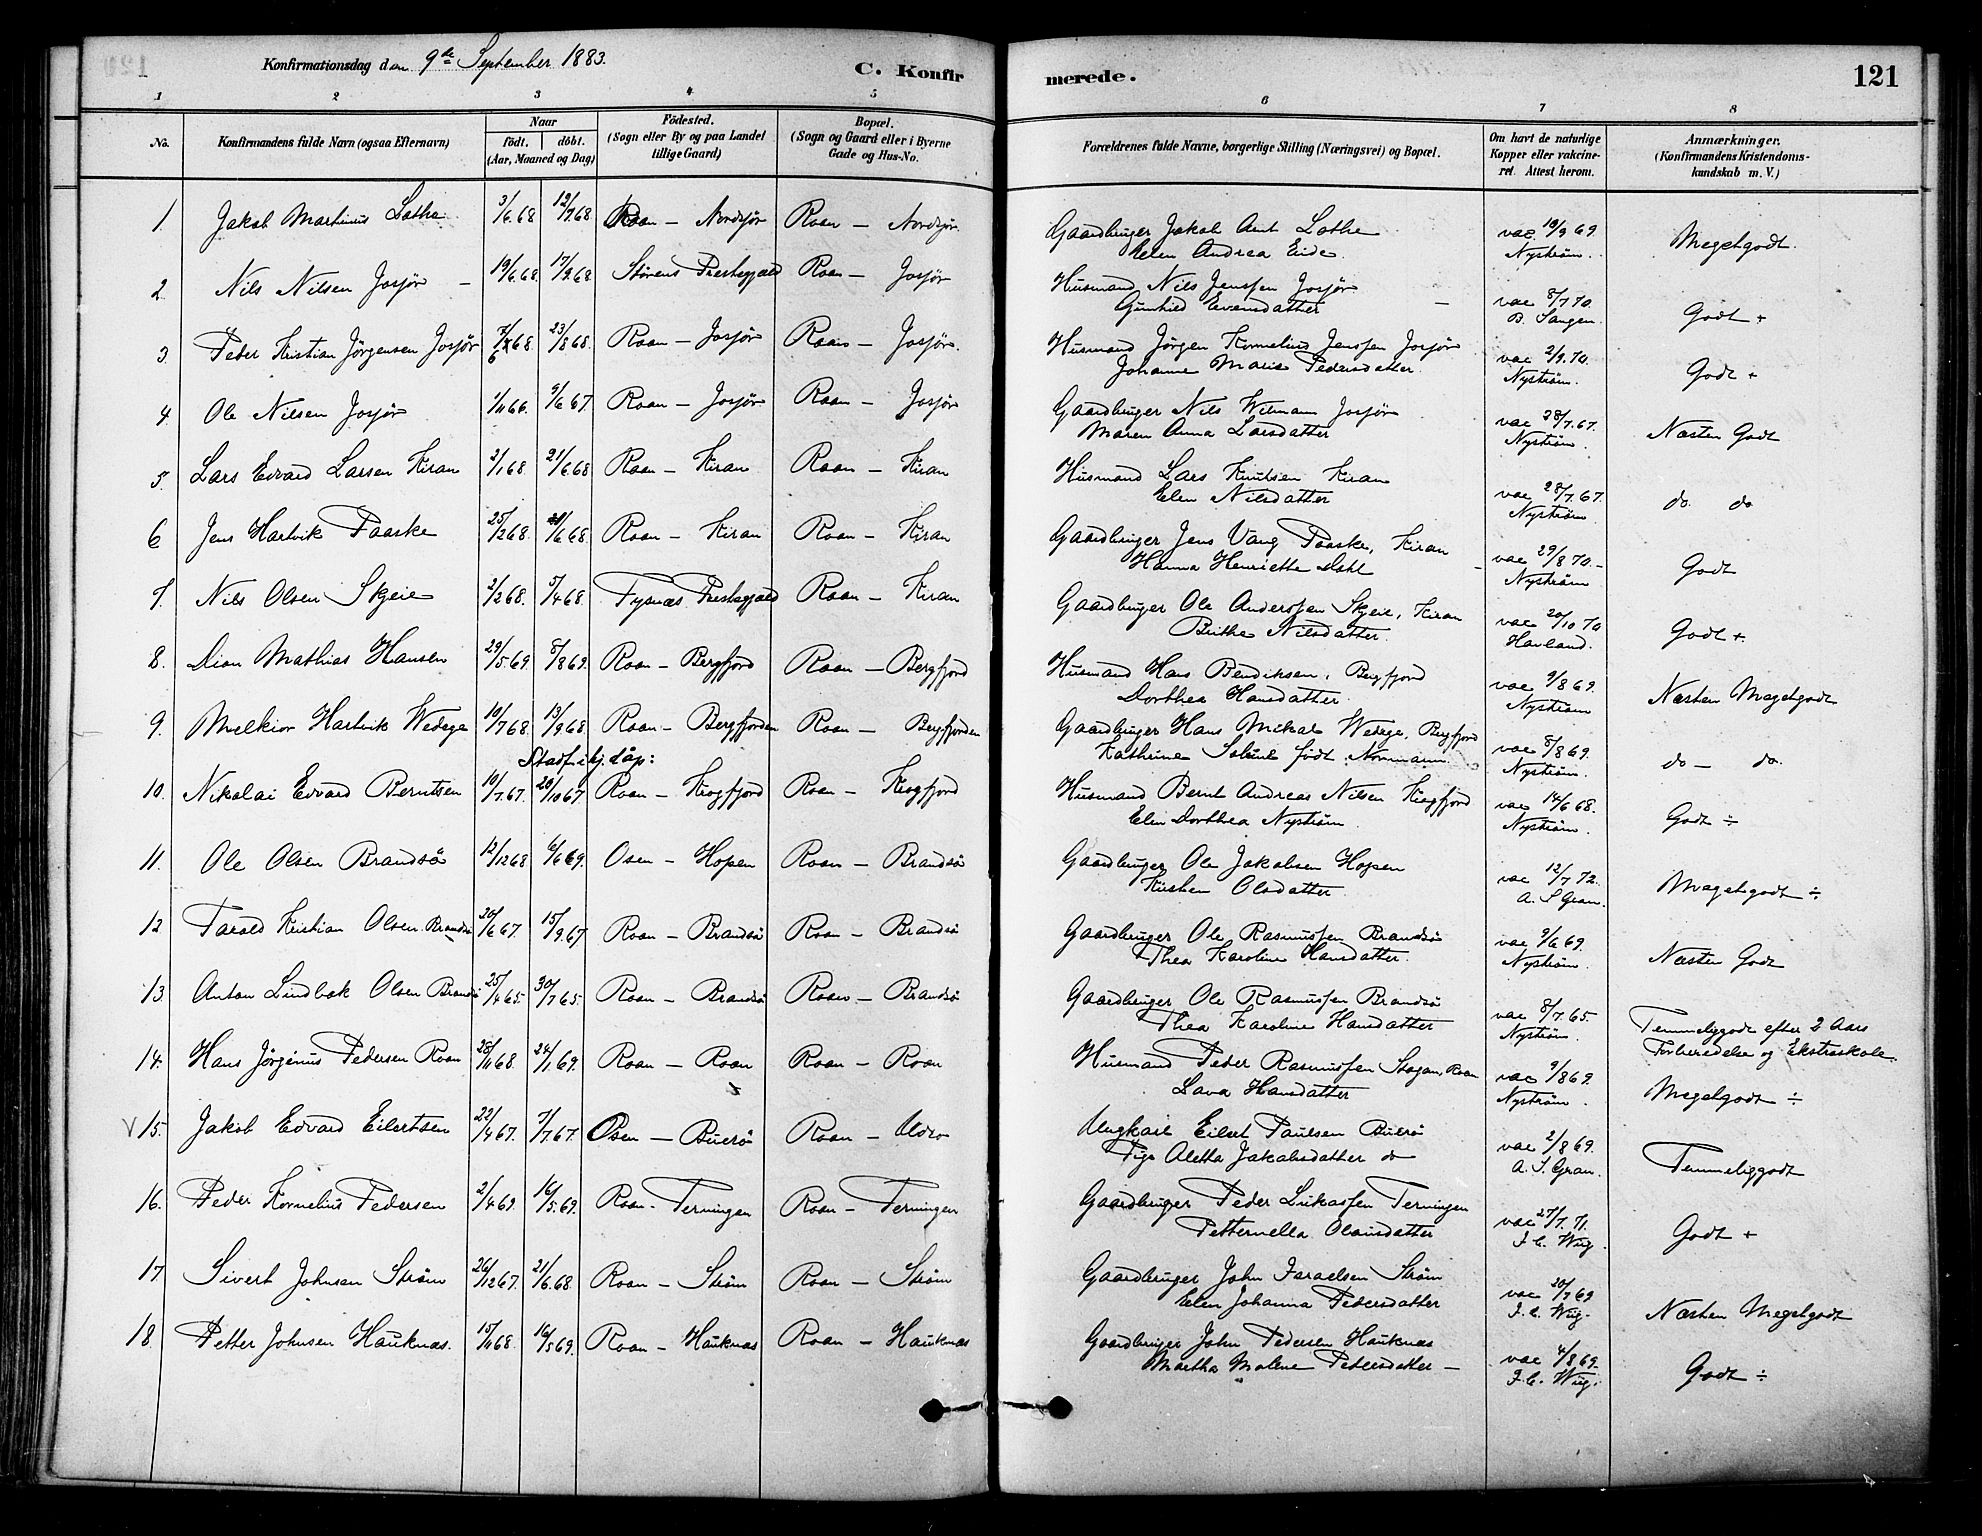 Konfirmationsdag den 9de September 1883.
C. Konfirmerede.
121
1 2 3 4 5 6 7 8
No.
Konfirmandens fulde Navn (ogsaa Efternavn)
Naar
födt. döbt.
(Aar, Maaned og Dag)
Födested.
(Sogn eller By og paa Landet tillige Gaard)
Bopæl.
(Sogn og Gaard eller i Byerne Gade og Hus-No.
Forældrenes fulde Navne, borgerlige Stilling (Næringsvei) og Bopæl.
Om havt de naturlige Kopper eller vakcineret. Attest herom.
Anmærkninger.
(Konfirmandens Kristendomskundskab m. V.)
1. Jakob Martinus Lothe 3/6.68 12/7.68 Roan – Nordsjør Roan – Nordsjør Gaardbruger Jakob Arit Lothe vac 10/9 69. Megetgodt.
Elen Andrea Eide. Nyström.
2. Nils Nilsen Josjör – 19/6.68. 17/9.68 Störens Prestegjæld Roan – Josjör Husmand Nils Jenssen Josjör vac 8/7 70. Godt +
Gunhild Evensdatter – B. Sangen.
3. Peder Kristian Jörgensen Josjör 7/6 68. 23/8 68. Roan – Josjör Roan – Josjör. Husmand Jörgen Kornelius Jenssen Josjör vac 2/9.70. Godt +
Johanne Marie Pedersdatter. Nyström.
4. Ole Nilsen Josjör 1/11 66. 9/6 67. Roan – Josjör Roan – Josjör Gaardbruger Nils Wilmann Josjör vac 28/7.67. Næsten Godt
Maren Anna Larsdatter Nyström.
5. Lars Edvard Larsen Kiran 2/1 68. 21/6.68 Roan – Kiran Roan – Kiran Husmand Lars Knutsen Kiran vac 28/7.67. do do
Elen Nilsdatter Nyström
6 Jens Hartvik Paaske 25/2 68. 21/6 68 Roan – Kiran Roan – Kiran Gaardbruger Jens Vang Paaske, Kiran vac 29/8 70.– Godt
Hanna Henriette Dahl – Nyström
7. Nils Olsen Skjeie 2/2 68. 5/4 68. Tysnæs Prestegjæld Roan – Kiran Gaardbruger Ole Anderssen Skjeie, Kiran vac 20/10 70 Godt +.
Brithe Nilsdatter. Havland.
8. Dion Mathias Hansen 29/5.69. 8/8 69. Roan – Bergfjord Roan – Bergfjord Husmand Hans Bendiksen, Bergfjord vac 9/8 69. Næsten Megetgodt
Dorthea Hansdatter. Nyström
9. Melkior Hartvik Wedege 10/7 68. 13/9.68 Roan – Bergfjorden Roan – Bergfjorden Gaardbruger Hans Mikal Wedege, Bergfjord vac 8/8 69. do – do.
Kathrine Soline födt Normann Nyström.
Stadf. hj. dåp:
10. Nikolai Edvard Berntsen 19/7.67. 20/10 67 Roan – Kiægfjord Roan – Kiægfjord Husmand Bernt Andreas Nilsen Kiægfjord vac 14/6 68. Godt ÷
Elen Dorthea Nyström. Nyström.
11. Ole Olsen Brandsö 12/12 68 6/6 69. Osen – Hopen Roan – Brandsö Gaardbruger Ole Jakobsen Hopen vac 12/7 72. Megetgodt ÷
Kirsten Olsdatter A. S Gran.
12 Tarald Kristian Olsen Brandsö 30/6 67. 15/9.67 Roan – Brandsö Roan – Brandsö Gaardbruger Ole Rasmussen Brandsö vac 9/6 69. Næsten Godt
Thea Karoline Hansdatter. Nyström.
13. Anton Lindbak Olsen Brandsö 25/4 65 30/7 65. Roan – Brandsö Roan – Brandsö Gaardbruger Ole Rasmussen Brandsö vac 8/7.65. Temmeliggodt efter 2 Aars
Thea Karoline Hansdatter Nyström. Forberedelse og Ekstraskole.
14. Hans Jörginus Pedersen Roan 28/11 68. 24/1.69. Roan – Roan Roan – Roan Husmand Peder Rasmussen Stogan, Roan vac 9/8 69. Megetgodt ÷
Lava Hansdatter Nyström.
V 15. Jakob Edvard Eilertsen 22/4 67. 7/7.67. Osen – Buerö Roan – Udro Ungkarl Eilert Paulsen Buerö vac 2/8 69. Temmeliggodt
Pige Aletta Jakobsdatter do A. S. Gran.
16. Peder Kornelius Pedersen 2/4 69. 16/5.69. Roan – Terningen Roan – Terningen Gaardbruger Peder Lukassen Terningen vac 27/7.71. Godt +
Petternella Olausdatter J. C. Wug.
17 Sivert Johnsen Ström 26/12 67. 21/6.68. Roan – Ström Roan – Ström Gaardbruger John Israelsen Ström vac 20/7 69 Næsten Megetgodt
Elen Johanna Pedersdatter J. C. Wug.
18. Petter Johnsen Hauknæs. 15/11 68. 16/5 69. Roan – Hauknæs Roan – Hauknæs Gaardbruger John Pedersen Hauknæs vac 4/8 69. Godt ÷
Martha Malene Pedersdatter – J. C. Wug.